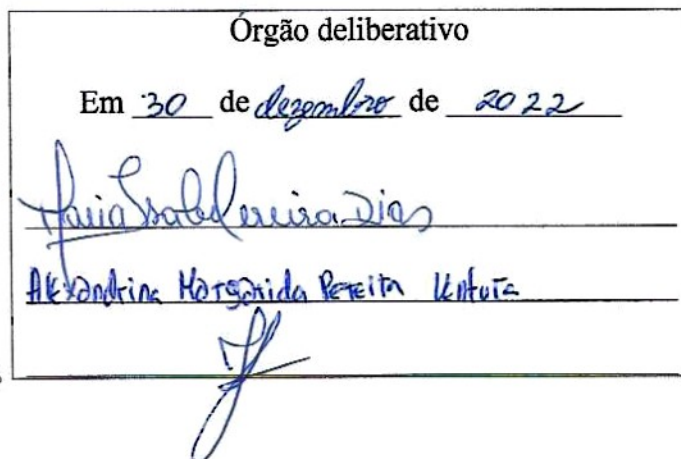 Órgão deliberativo
Em 30 de dezembro de 2022
Maria Isabel Pereira Dias
Alexandrina Margarida Pereira Ventura